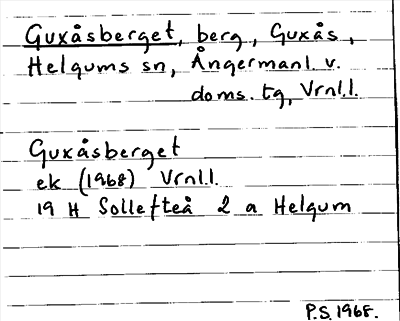 Guxåsberget, berg, Guxås,
Helgums sn, Ångermanl. v.
doms. tg, Vrnl.l.
Guxåsberget
ek (1968) Vrnl.l.
19 H Sollefteå 2 a Helgum
P.S. 1968.